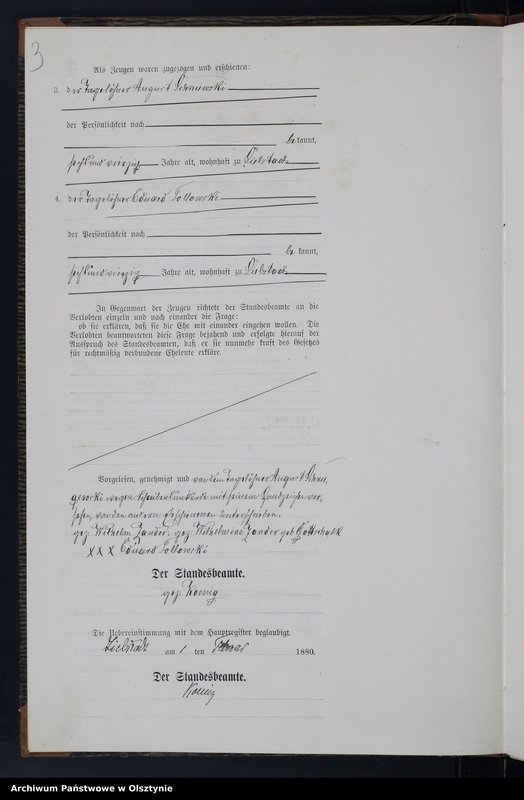 3
Als Zeugen waren zugezogen und erschienen:
3. der Tagelöhner August
der Persönlichkeit nach
bekannt,
sechsundvierzig Jahre alt, wohnhaft zu Liebstadt
4. der Tagelöhner Eduard Sollowski
der Persönlichkeit nach
bekannt,
sechsundvierzig Jahre alt, wohnhaft zu Liebstadt
In Gegenwart der Zeugen richtete der Standesbeamte an die
Verlobten einzeln und nach einander die Frage:
ob sie erklären, daß sie die Ehe mit einander eingehen wollen. Die
Verlobten beantworteten diese Frage bejahend und erfolgte hierauf der
Ausspruch des Standesbeamten, daß er sie nunmehr kraft des Gesetzes
für rechtmäßig verbundene Eheleute erkläre.
Vorgelesen, genehmigt und von dem Tagelöhner August
wegen Schreibensunkunde mit seinem Handzeichen ver-
sehen, von den anderen Erschienenen unterschrieben.
gez: Wilhelm Zander. gez: Wilhelmine Zander geb Gottschalk
XXX Eduard Sollowski
Der Standesbeamte.
gez: Koenig
Die Uebereinstimmung mit dem Hauptregister beglaubigt.
Liebstadt am 1 ten Februar 1880.
Der Standesbeamte.
Koenig
Archiwum Państwowe w Olsztynie